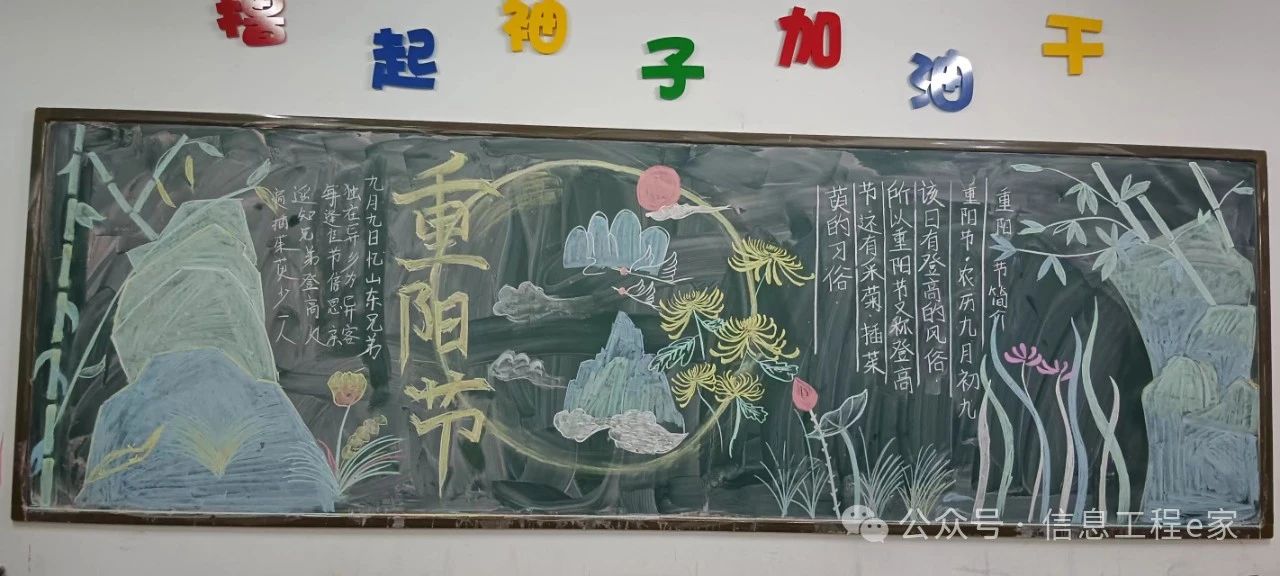 撸起袖子加油干
重阳节
九月九日忆山东兄弟
独在异乡为异客
每逢佳节倍思亲
遥知兄弟登高处
遍插茱萸少一人
重阳节简介
重阳节·农历九月初九
该日有登高的风俗·
所以重阳节又称登高
节还有采菊插茱
萸的习俗·
公众号·信息工程e家